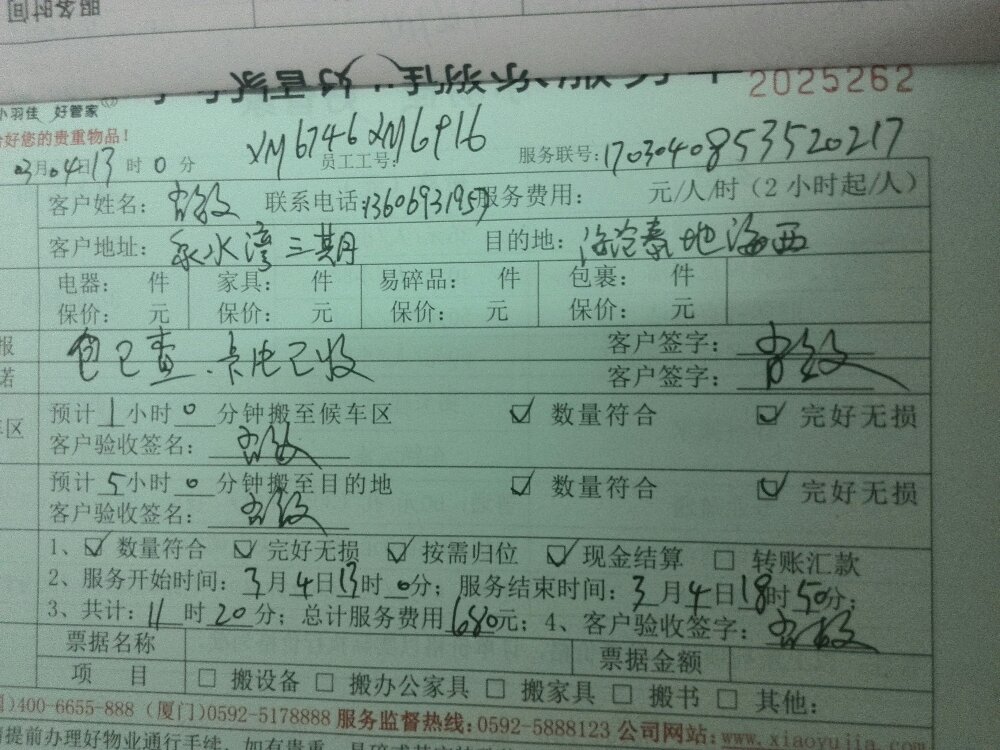 2025262
小羽佳 好管家
好您的贵重物品！
XM6746 XM6916
03月04日13时0分 员工工号： 服务联号：1703040853520217
客户姓名： 联系电话：13606931957 服务费用： 元/人/时（2小时起/人）
客户地址：永水湾三期 目的地：海沧泰地海西
电器： 件 家具： 件 易碎品： 件 包裹： 件
保价： 元 保价： 元 保价： 元 保价： 元
报 包已查.卡片已收 客户签字：
诺 客户签字：
车区 预计1小时0分钟搬至候车区 ☑ 数量符合 ☑ 完好无损
客户验收签名：
预计5小时0分钟搬至目的地 ☑ 数量符合 ☑ 完好无损
客户验收签名：
1、☑ 数量符合 ☑ 完好无损 ☑ 按需归位 ☑ 现金结算 □ 转账汇款
2、服务开始时间：3月4日13时0分；服务结束时间：3月4日18时50分；
3、共计：11时20分；总计服务费用680元；4、客户验收签字：
票据名称 票据金额
项 目 □ 搬设备 □ 搬办公家具 □ 搬家具 □ 搬书 □ 其他：
)400-6655-888（厦门)0592-5178888 服务监督热线：0592-5888123 公司网站：www.xiaoyujia.
提前办理好物业通行手续，如有贵重、易碎或